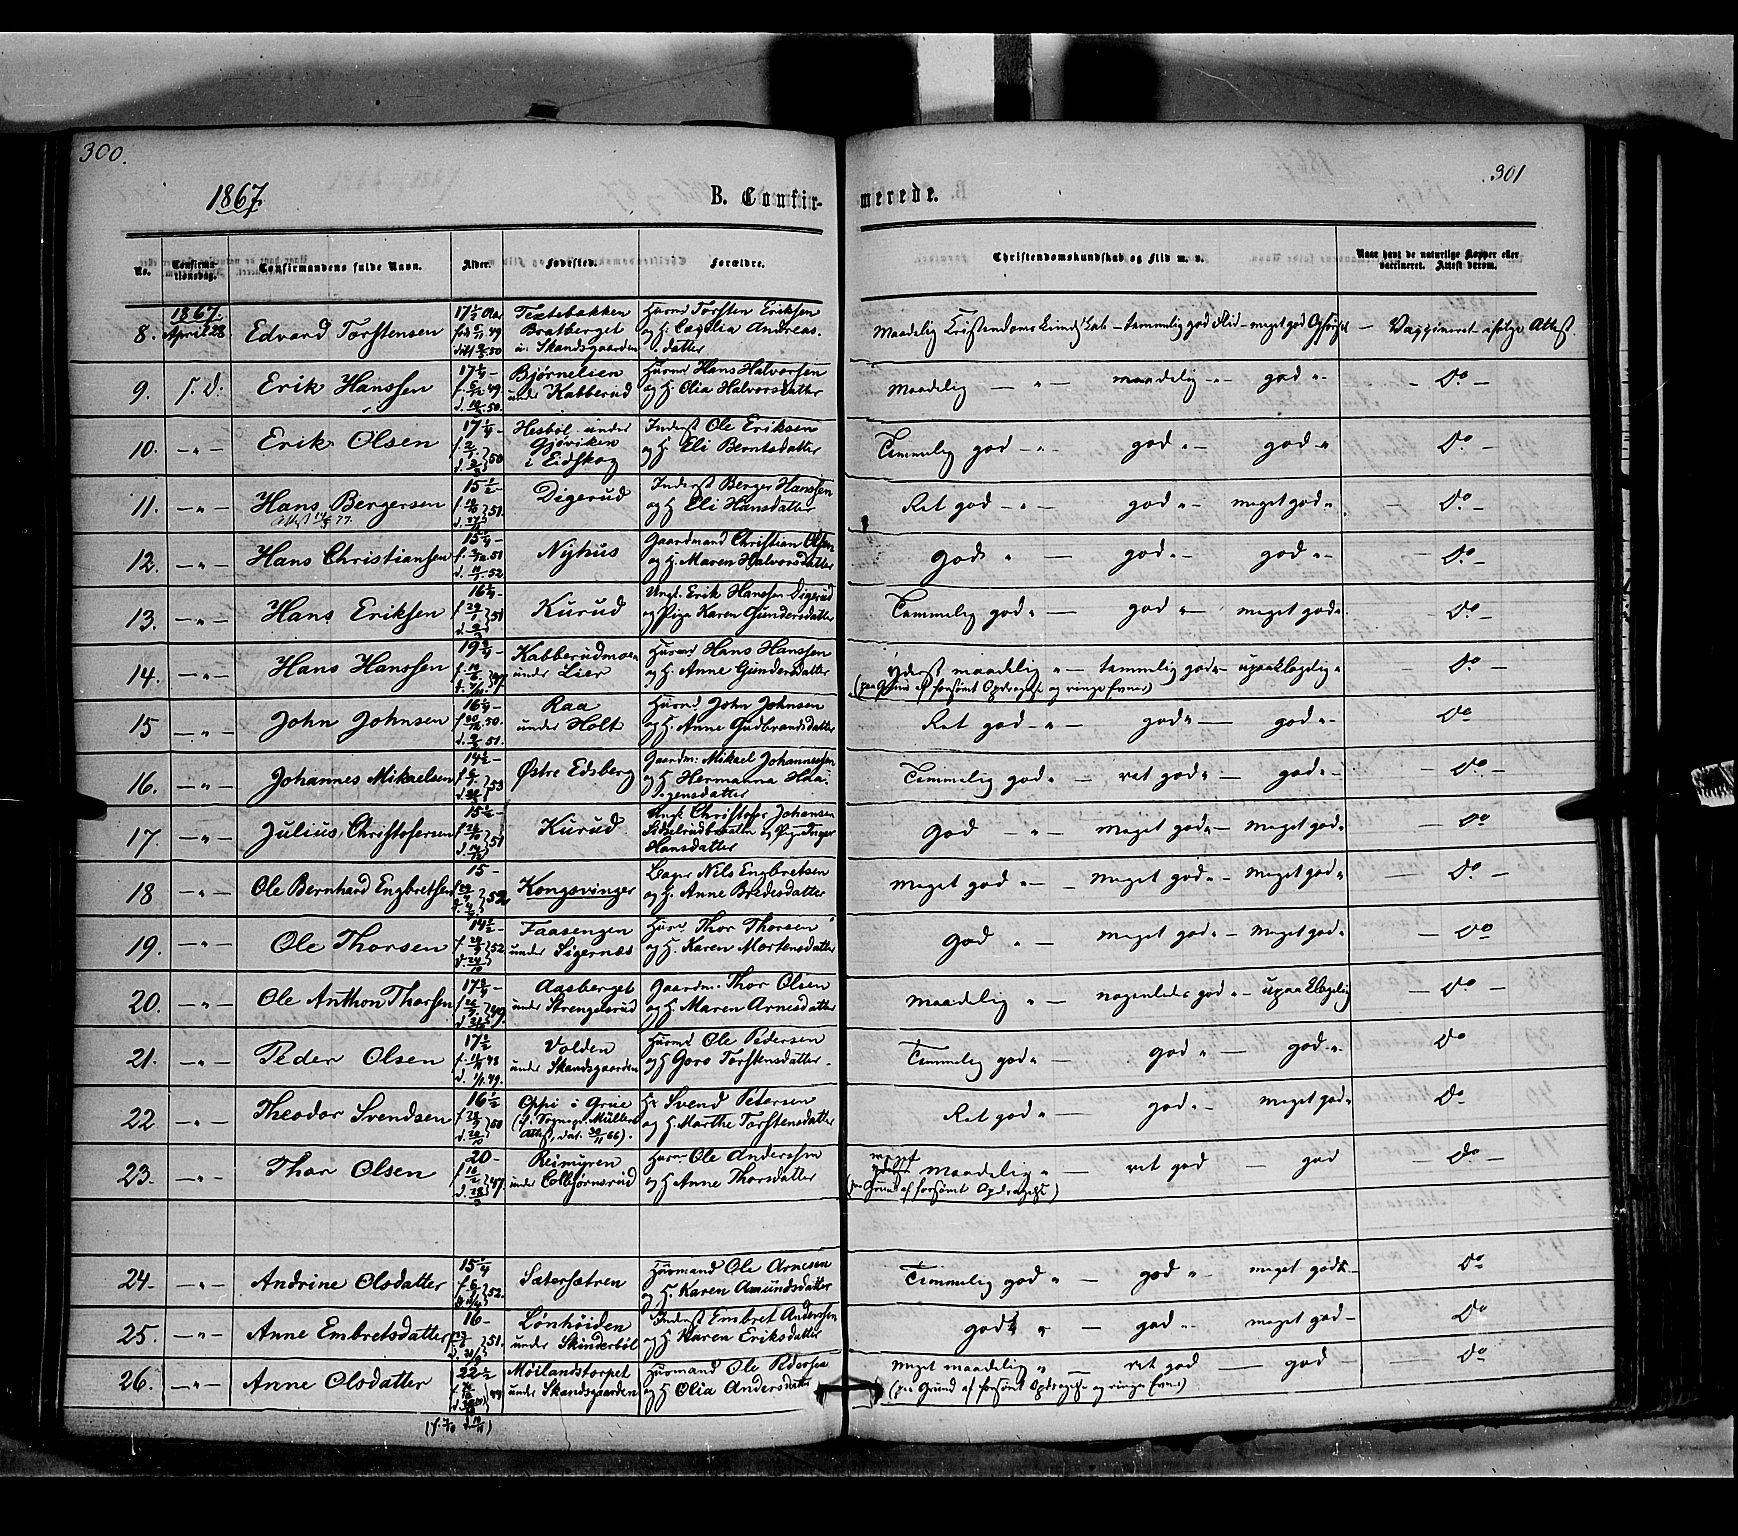 300.
301
1867.
B. Confir-
merede.
No.
Confirma-
tionsdag.
Confirmandens fulde Navn.
Alder.
Fødested.
Forældre.
Christendomskundskab og Flid m. v.
Naar havt de naturlige Kopper eller
vaccineret. Attest derom.
1867.
8. April 28 Edvard Torstensen 17 1/2 Aar Textebakken Huusmd Torsten Eriksen
Bratberget og H. Cecilia Andreas-
u. Skandsgaarden datter
Maadelig Kristendoms Kundskab - temmelig god Flid - meget god Opførsel - Vaccineret ifølge Attest
9. s. d. Erik Hanssen 17 1/4 - Bjørnelien Huusmd Hans Halvorsen
under Kabberud og H. Olia Halvorsdatter
Maadelig - " - maadelig " - god " - Do -
10. - " - Erik Olsen Hesbøl under Inderst Ole Eriksen
Gjøviken og H. Eli Berntsdatter
i Eidskog
Temmelig god - " - god " - god - " Do
11. - " - Hans Bergersen 15 1/2 - Digerud Inderst Berger Hanssen
og H. Eli Hansdatter
Ret god - " - god " - meget god " - Do
12. - " - Hans Christiansen Nyhus Gaardmand Christian Olsen
og H. Maren Halvorsdatter
god " - god " - god " - Do -
13. - " - Hans Eriksen Kurud Ungk. Erik Hanssen Digerud
og Pige Karen Gundersdatter
Temmelig god " - god " - meget god " Do -
14. - " - Hans Hanssen Kabberudmoen Huusmd Hans Hanssen
under Lier og H. Anne Gundersdatter
yderst maadelig " - temmelig god " - upaaklagelig " - Do -
(paa Grund af forsømt Opdragelse og ringe Evner)
15 - " - John Johnsen Raa Huusmd John Johnsen
under Holt og H. Anne Gudbrandsdatter
Ret god - " - god " - god " - Do
16. - " - Johannes Mikaelsen 14 1/2 - Østre Edsberg Gaardm. Mikael Johannessen
og H. Hermana Haa-
gensdatter
Temmelig god " - ret god " - god " - Do -
17. - " - Julius Christofersen Kurud Ungk. Christofer Johansen
og Pige Inger
Hansdatter
god - " - meget god " - meget god " Do
18 - " - Ole Bernhard Engbretsen 15 - Kongsvinger Nils Engbretsen
og H. Anne Bredesdatter
Meget god " - meget god " - meget god " - Do -
19. - " - Ole Thorsen Faasengen Huusmd Thor Thorsen
under Sigernæs og H. Karen Mortensdatter
god " - meget god " - meget god " - Do
20. - " - Ole Anthon Thorsen Aasberget Gaardm. Thor Olsen
under Strengelsrud og H. Maren Arnesdatter
maadelig " - nogenledes god " - upaaklagelig - Do -
21. - " - Peder Olsen 17 1/2 Volden Huusmd Ole Pedersen
under Skandsgaarden og H. Goro Torstensdatter
Temmelig god " - god " - god " - Do
22 - " - Theodor Svendsen 16 1/2 Oppi i Grue Svend Petersen
(f. Sognep. Müllers og H. Marthe Torstensdatter
Attest, dat. 30/11 66).
Ret god " god " - meget god " Do -
23. - " - Thor Olsen 20 - Reimyren Huusm Ole Anderssen
og H. Anne Thorsdatter
meget
yderst maadelig " - ret god - god - Do -
(paa Grund af forsømt Opdragelse)
24. - " - Andrine Olsdatter 15 1/4 Sætersætren Huusmand Ole Arnesen
og H. Karen Amundsdatter
Temmelig god " - god " - meget god - Do
25. - " - Anne Embretsdatter 16 - Lønhøiden Inderst Embret Anderssen
under Skinderbøl og H. Karen Eriksdatter
godt " - god " - meget god - Do
26. - " - Anne Olsdatter 22 1/2 Møilandstorpet Huusmand Ole Pedersen
under Skandsgaarden og H. Olia Andersdatter
Meget maadelig " - ret god - god - Do
(paa Grund af forsømt Opdragelse og ringe Evner)